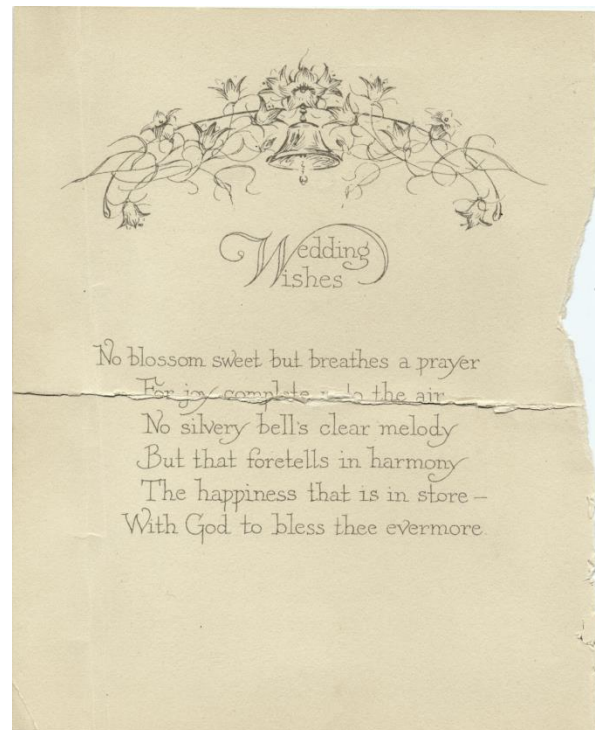 Wedding
Wishes
No blossom sweet but breathes a prayer
For joy complete the air
No silvery bell's clear melody
But that foretells in harmony
The happiness that is in store —
With God to bless thee evermore.